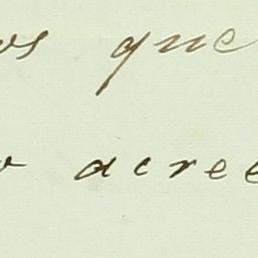 os que
o acree